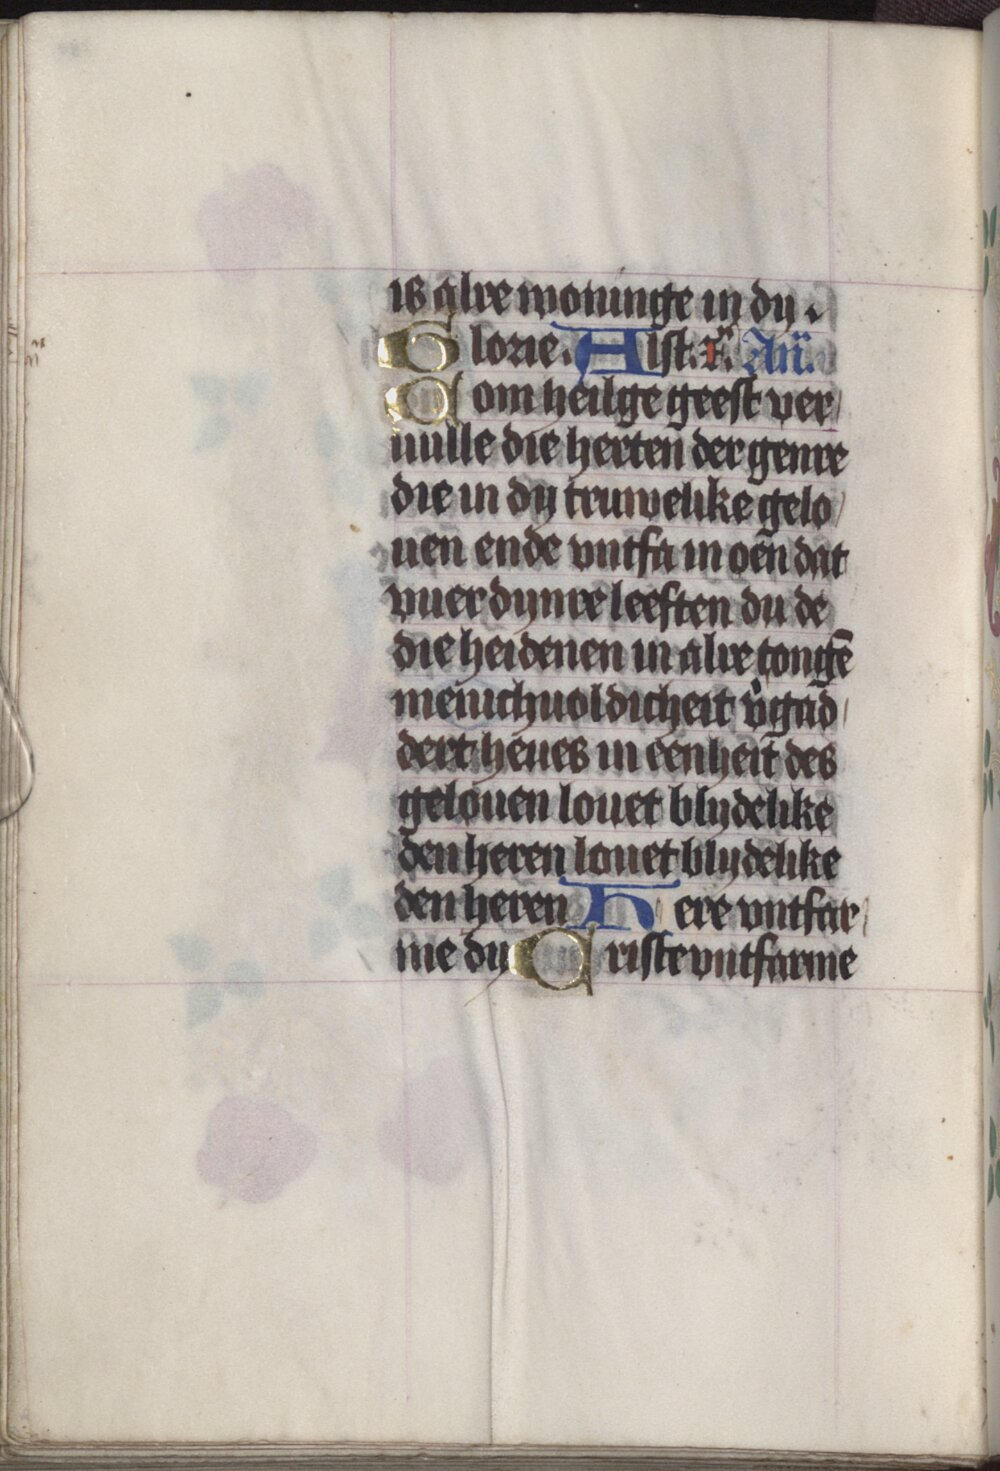 is alre woninge in dy.
Glorie. Alst. r̄. An̄.
Com heilge geest ver
uulle die herten der genre
die in dy truwelike gelo
uen ende vntfa in oen dat
vuer dynre leeften du de
die heidenen in alre tongē
menichuoldicheit v̓gad
dert heues in eenheit des
gelouen louet blydelike
den heren louet blydelike
den heren Here vntfar
me dy Criste vntfarme